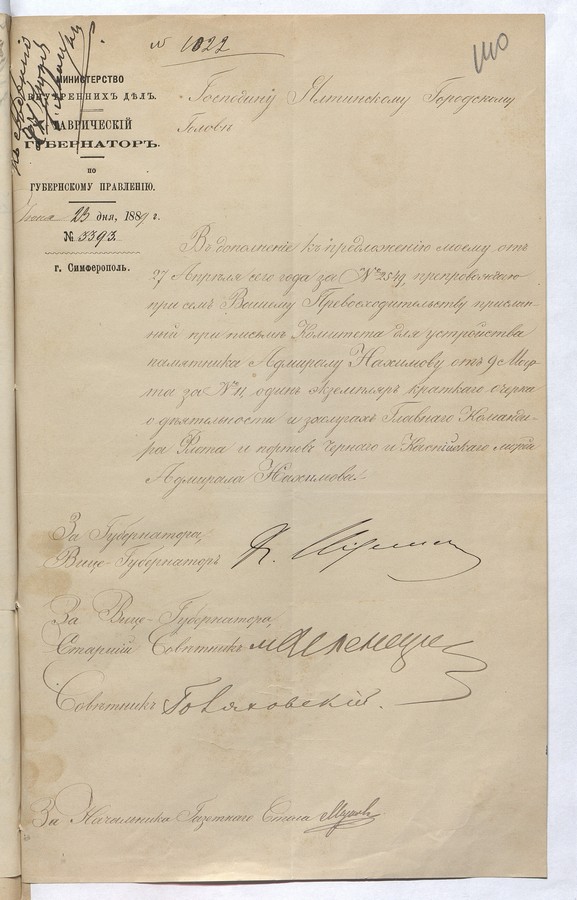 № 1022
110
МИНИСТЕРСТВО
ВНУТРЕННИХЪ ДѢЛЪ.
ТАВРИЧЕСКІЙ
ГУБЕРНАТОРЪ.
ПО
ГУБЕРНСКОМУ ПРАВЛЕНІЮ.
23 дня, 1889 г.
№ 3393.
г. Симферополь.
Господину Ялтинскому Городскому
Головѣ
Въ дополненіе къ предложенію моему отъ
27 Апрѣля сего года за № 2549, препровождаю
при семъ Вашему Превосходительству прислан-
ный при письмѣ Комитета для устройства
памятника Адмиралу Нахимову отъ 9 Мар-
та за № 11, одинъ экземпляръ краткаго очерка
о дѣятельности и заслугахъ Главнаго Команди-
ра Флота и портовъ Чернаго и Каспійскаго морей
Адмирала Нахимова.
За Губернатора,
Вице-Губернаторъ
За Вице-Губернатора,
Старшій Совѣтникъ
Совѣтникъ
За Начальника Газетнаго Стола